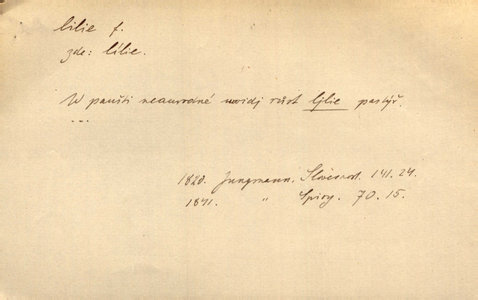 lilie f.
zde: lílie.
W paušti neaurodné uwidj růst ljlie pastýř.
...
1820. Jungmann, Slovesnost. 141. 24.
1841. " Spisy. 70. 15.